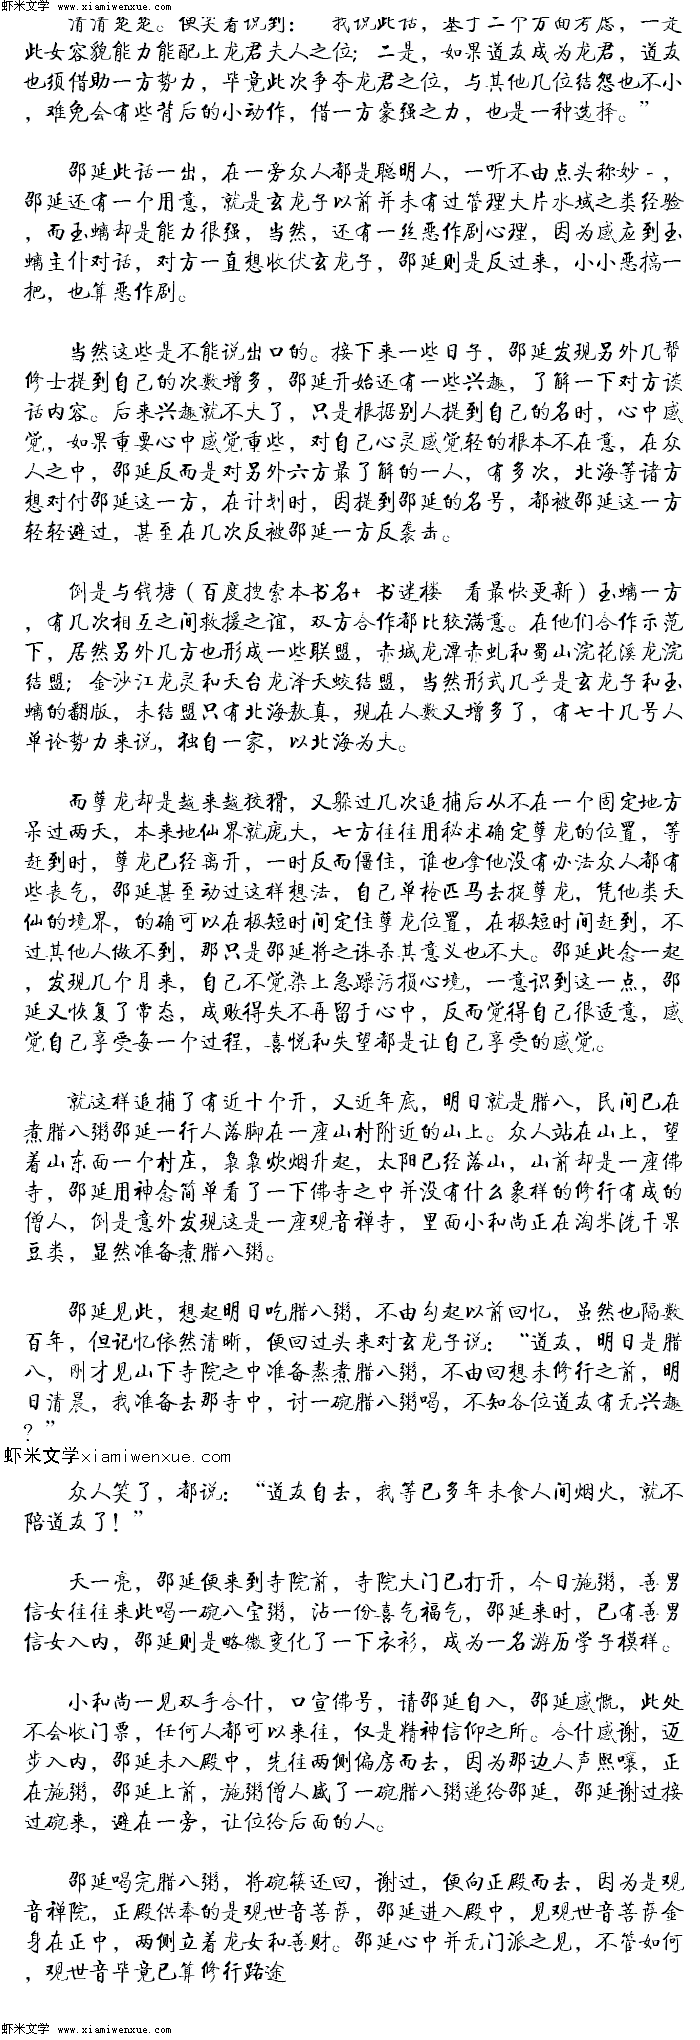 虾米文学 www.xiamiwenxue.com
清清楚楚。便笑着说到：“我说此话，基于二个方面考虑，一是
此女容貌能力能配上龙君夫人之位；二是，如果道友成为龙君，道友
也须借助一方势力，毕竟此次争夺龙君之位，与其他几位结怨也不小
，难免会有些背后的小动作，借一方豪强之力，也是一种选择。”
邵延此话一出，在一旁众人都是聪明人，一听不由点头称妙-，
邵延还有一个用意，就是玄龙子以前并未有过管理大片水域之类经验
，而玉螭却是能力很强，当然，还有一丝恶作剧心理，因为感应到玉
螭主仆对话，对方一直想收伏玄龙子，邵延则是反过来，小小恶搞一
把，也算恶作剧。
当然这些是不能说出口的。接下来一些日子，邵延发现另外几帮
修士提到自己的次数增多，邵延开始还有一些兴趣，了解一下对方谈
话内容。后来兴趣就不大了，只是根据别人提到自己的名时，心中感
觉，如果重要心中感觉重些，对自己心灵感觉轻的根本不在意，在众
人之中，邵延反而是对另外六方最了解的一人，有多次，北海等诸方
想对付邵延这一方，在计划时，因提到邵延的名号，都被邵延这一方
轻轻避过，甚至在几次反被邵延一方反袭击。
倒是与钱塘（百度搜索本书名+ 书迷楼 看最快更新）玉螭一方
，有几次相互之间救援之谊，双方合作都比较满意。在他们合作示范
下，居然另外几方也形成一些联盟，赤城龙潭赤虬和蜀山浣花溪龙浣
结盟；金沙江龙灵和天台龙泽天蛟结盟，当然形式几乎是玄龙子和玉
螭的翻版，未结盟只有北海敖真，现在人数又增多了，有七十几号人
单论势力来说，独自一家，以北海为大。
而孽龙却是越来越狡猾，又躲过几次追捕后从不在一个固定地方
呆过两天，本来地仙界就庞大，七方往往用秘术确定孽龙的位置，等
赶到时，孽龙已经离开，一时反而僵住，谁也拿他没有办法众人都有
些丧气，邵延甚至动过这样想法，自己单枪匹马去捉孽龙，凭他类天
仙的境界，的确可以在极短时间定住孽龙位置，在极短时间赶到，不
过其他人做不到，那只是邵延将之诛杀其意义也不大。邵延此念一起
，发现几个月来，自己不觉染上急躁污损心境，一意识到这一点，邵
延又恢复了常态，成败得失不再留于心中，反而觉得自己很适意，感
觉自己享受每一个过程，喜悦和失望都是让自己享受的感觉。
就这样追捕了有近十个开，又近年底，明日就是腊八，民间已在
煮腊八粥邵延一行人落脚在一座山村附近的山上。众人站在山上，望
着山东面一个村庄，袅袅炊烟升起，太阳已经落山，山前却是一座佛
寺，邵延用神念简单看了一下佛寺之中并没有什么象样的修行有成的
僧人，倒是意外发现这是一座观音禅寺，里面小和尚正在淘米洗干果
豆类，显然准备煮腊八粥。
邵延见此，想起明日吃腊八粥，不由勾起以前回忆，虽然也隔数
百年，但记忆依然清晰，便回过头来对玄龙子说：“道友，明日是腊
八，刚才见山下寺院之中准备蒸煮腊八粥，不由回想未修行之前，明
日清晨，我准备去那寺中，讨一碗腊八粥喝，不知各位道友有无兴趣
？”
虾米文学xiamiwenxue.com
众人笑了，都说：“道友自去，我等已多年未食人间烟火，就不
陪道友了！”
天一亮，邵延便来到寺院前，寺院大门已打开，今日施粥，善男
信女往往来此喝一碗八宝粥，沾一份喜气福气，邵延来时，已有善男
信女入内，邵延则是略微变化了一下衣衫，成为一名游历学子模样。
小和尚一见双手合什，口宣佛号，请邵延自入，邵延感慨，此处
不会收门票，任何人都可以来往，仅是精神信仰之所。合什感谢，迈
步入内，邵延未入殿中，先往两侧偏房而去，因为那边人声熙嚷，正
在施粥，邵延上前，施粥僧人盛了一碗腊八粥递给邵延，邵延谢过接
过碗来，避在一旁，让位给后面的人。
邵延喝完腊八粥，将碗筷还回，谢过，便向正殿而去，因为是观
音禅院，正殿供奉的是观世音菩萨，邵延进入殿中，见观世音菩萨金
身在正中，两侧立着龙女和善财。邵延心中并无门派之见，不管如何
，观世音毕竟已算修行路途
虾米文学 www.xiamiwenxue.com